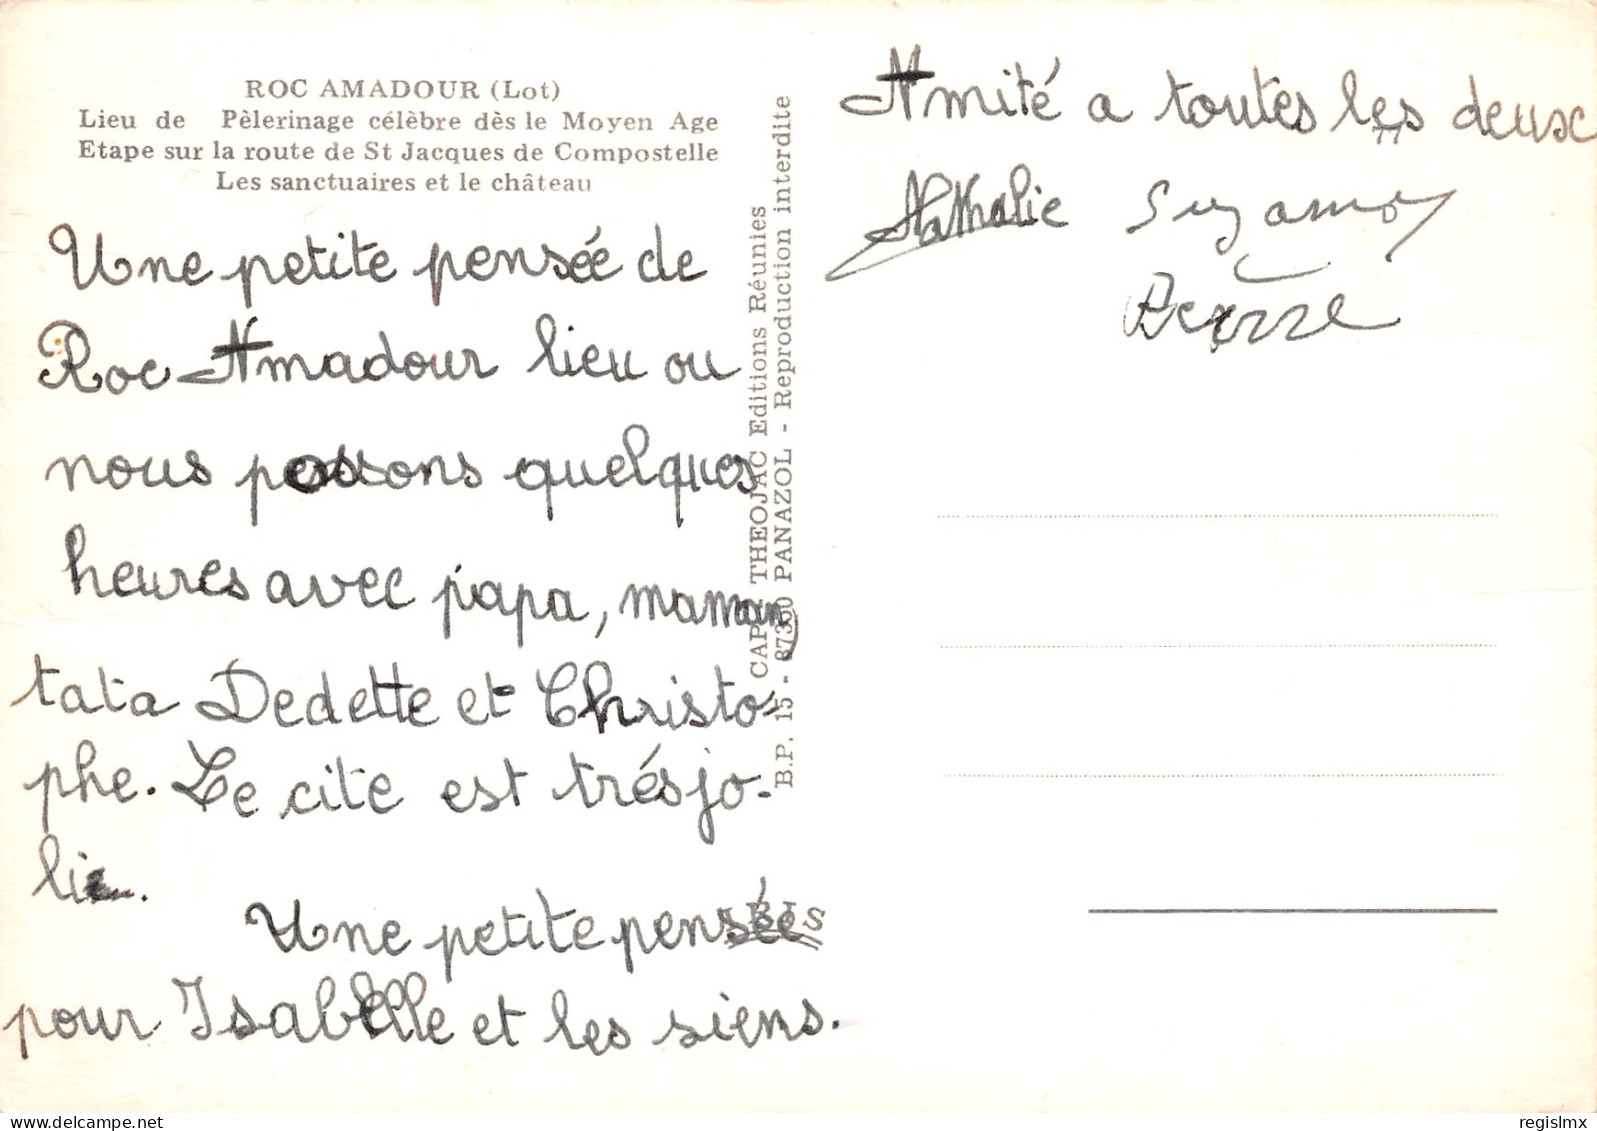 ROC AMADOUR (Lot)
Lieu de Pèlerinage célèbre dès le Moyen Age
Etape sur la route de St Jacques de Compostelle
Les sanctuaires et le château
Une petite pensée de
Roc Amadour lieu ou
nous passons quelques
heures avec papa, maman,
tata Dedette et Christo-
phe. Le cite est trés jo-
lie.
Une petite pensée
pour Isabelle et les siens.
CAP - THEOJAC Editions Réunies
B.P. 15 - 87350 PANAZOL - Reproduction interdite
IBIS
Amité a toutes les deux
Nathalie
delcampe.net
regislmx